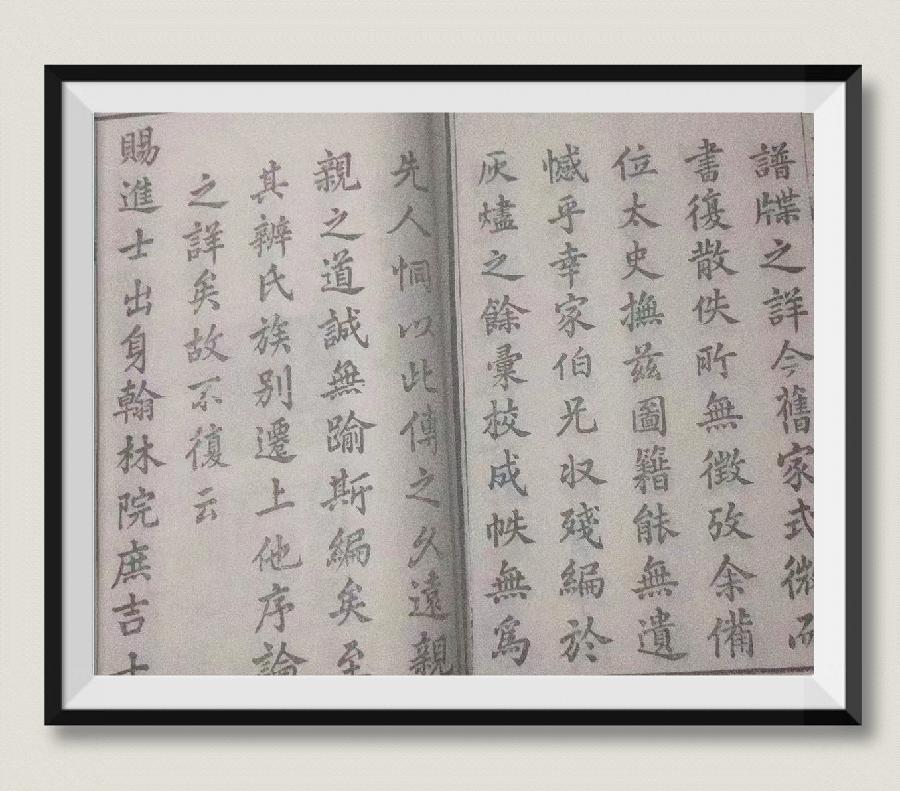 譜牒之詳今舊家式微而
書復散佚所無徵攷余備
位太史撫兹圖籍能無遺
憾乎幸家伯兄収殘編於
灰燼之餘彙校成帙無為
先人恫以此傳之久遠親
親之道誠無踰斯編矣至
其辨氏族別遷上他序論
之詳矣故不復云
賜進士出身翰林院庶吉士